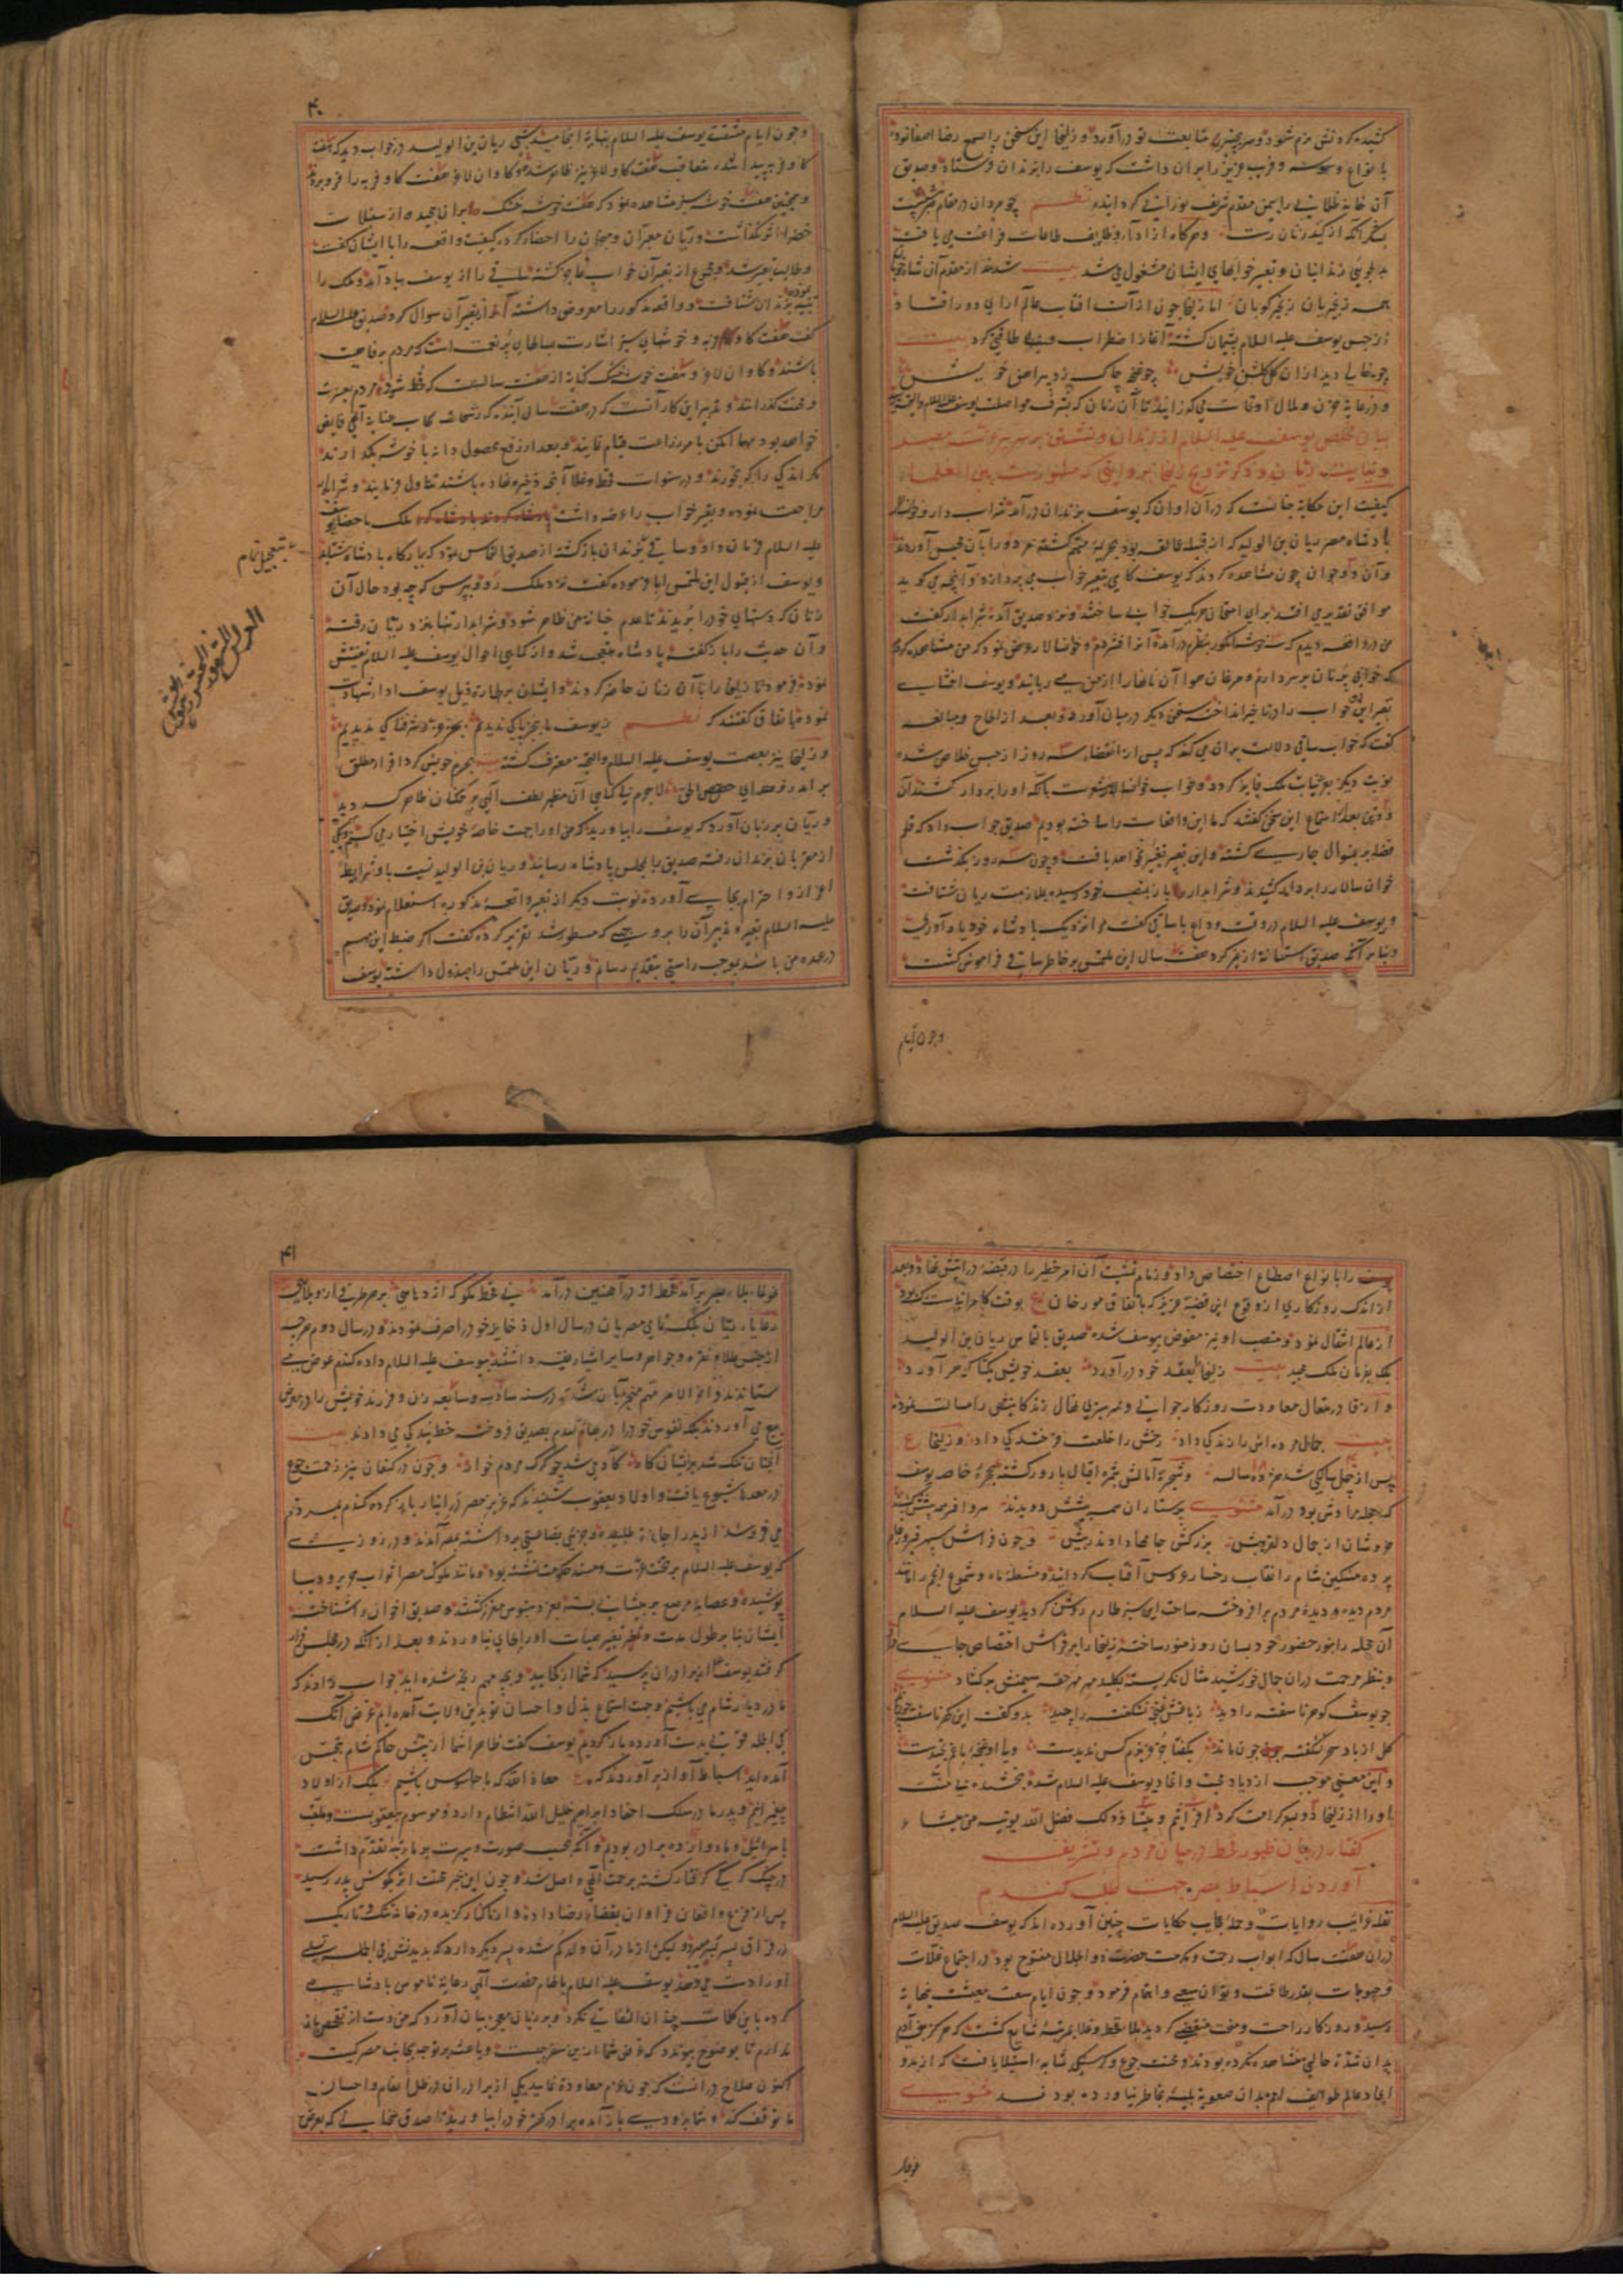 کشیده گردنش نرم شود و سر بچنبر متابعت تو درآورد و زلیخا این سخن را بسمع رضا اصغا نموده
بانواع وسوسه و فریب عزیز را بران داشت که یوسف را بزندان فرستاد و صدیق
آن خانه ظلمانی را بیمن مقدم شریف نورانی گردانیده نظم چو مردان در مقام صبر بنشست
بشکر آنکه از کید زنان رست و هرگاه از اداء وظایف طاعات فراغت می یافت
بدلجوئی زندانیان و تعبیر خوابهای ایشان مشغول می شد بیت شدند از مقدم آن شاد خوبان
همه زنجیریان زنجیر کوبان اما زلیخا چون از آن آفتاب عالم آرای دور افتاد
از حبس یوسف علیه السلام پشیمان گشته آغاز اضطراب و بی طاقتی کرد بیت
چو خالی دید ازان گل گلشن خویش چو غنچه چاک زد پیراهن خویش
و در غایة حزن و ملال اوقات می گذرانید تا آن زمان که بشرف مواصلت یوسف علیه السلام
بیان مخلص یوسف علیه السلام از زندان و نشستن بر سریر عزت مصر
و نیابت ریان و ذکر تزویج زلیخا بروایتی که مشهورست بین العلماء
کیفیت این حکایة چنانست که در آن اوان که یوسف بزندان درآمد شراب دار و خوانسالار
پادشاه مصر ریان بن الولید که از قبیله عمالقه بود بجریمه متهم گشته هر دو را بآن محبس آوردند
و آن دو جوان چون مشاهده کردند که یوسف گاهی بتعبیر خواب می پردازد و آنچه می گوید
موافق تقدیر می افتد برای امتحان هریک خوابی ساختند و نزد صدیق آمده شرابدار گفت
من در واقعه دیدم که سه خوشه انگور بنظرم درآمد آنرا افشردم و خوانسالار عرض نمود که من مشاهده کردم
که خوانی پر نان بر سر دارم و مرغان هوا آن نانها را از من می ربایند و یوسف افشای
تعبیر این خواب را در تاخیر انداخته سخنی دیگر در میان آورد و بعد از الحاح و مبالغه
گفت که خواب ساقی دلالت بران می کند که پس از انقضاء سه روز از حبس خلاص شده
نوبت دیگر بعنایات ملک فایز گردد و خواب خوانسالار مشعرست بآنکه او را بر دار کشند آن
دو تن بعد از استماع این سخن گفتند که ما این واقعات را ساخته بودیم صدیق جواب داد که قلم
قضا برین منوال جاری گشته و این تعبیر تغییر نخواهد یافت و چون سه روز بگذشت
خوان سالار را بر دار کشیدند و شرابدار باز بمنصب خود رسیده بملازمت ریان شتافت
و یوسف علیه السلام در وقت وداع با ساقی گفت مرا نزدیک پادشاه خود یاد آوری
و بنابر آنکه صدیق استعانة از غیر کرد هفت سال این ملتمس بر خاطر ساقی فراموش گشت
وچون ایام
۴۰
و چون ایام مشقت یوسف علیه السلام بنهایة انجامید شبی ریان بن الولید در خواب دید که هفت
گاو فربه پیدا شد و متعاقب هفت گاو لاغر نیز ظاهر شد و گاوان لاغر هفت گاو فربه را فرو بردند
و همچنین هفت خوشه سبز مشاهده نمود که هفت خوشه خشک بران پیچیده از سنبلات
خضرا اثر نگذاشت و ریان معبران و منجمان را احضار کرده کیفیت واقعه را با ایشان گفت
و طالب تعبیر شد و مجموع از تعبیر آن خواب عاجز گشته ساقی را از یوسف بیاد آمد و ملک را
تنبیه نموده بزندان شتافت و واقعه مذکور را معروض داشته از تعبیر آن سوال کرد و صدیق علیه السلام
گفت هفت گاو فربه و خوشهای سبز اشارت بسالهای پرنعمت است که مردم برفاهیت
باشند و گاوان لاغر و هفت خوشه خشک کنایة از هفت سالیست که قحط شود و مردم بعسرت
و محنت گذرانند و تدبیر این کار آنست که در هفت سال آینده که رشحات سحاب عنایة الهی فایض
خواهد بود مهما امکن بامر زراعت قیام نمایند و بعد از رفع محصول دانه با خوشه بگذارند
مگر اندکی را که بخورند و در سنوات قحط و غلا آنچه ذخیره نهاده باشند تناول فرمایند و شرابدار
مراجعت نموده و تعبیر خواب را عرضه داشت ملک باحضار یوسف
علیه السلام فرمان داد و ساقی بزندان بازگشته از صدیق التماس نمود که ببارگاه پادشاه شتابد
بتعجیل تمام
و یوسف از قبول این ملتمس ابا فرموده گفت نزد ملک رو و بپرس که چه بود حال آن
زنان که دستهای خود را بریدند تا عدم خیانة من ظاهر شود و شرابدار تنها نزد ریان رفته
و آن حدیث را باز گفته پادشاه متعجب شد و از کماهی احوال یوسف علیه السلام تفتیش
نموده فرمود تا زلیخا را با آن زنان حاضر کردند و ایشان بر طهارة ذیل یوسف ادا شهادت
نموده باتفاق گفتند که نظم ز یوسف ما بجز پاکی ندیدیم بجز عز و شرفناکی ندیدیم
و زلیخا نیز بعصمت یوسف علیه السلام والتحیة معترف گشته بیت بجرم خویش کرد اقرار مطلق
برآمد زو صدای حصحص الحق لاجرم بی گناهی آن مظهر لطف الهی بر همگنان ظاهر گردید
و ریان بر زبان آورد که یوسف را بیارید که من او را جهت خاصة خویش اختیار می کنم و یکی
از مقربان بزندان رفته صدیق را بمجلس پادشاه رسانید و ریان بن الولید نسبت باو شرایط
اعزاز و احترام بجای آورده نوبت دیگر از تعبیر واقعه مذکوره استعلام نمود و صدیق
علیه السلام تعبیر و تدبیر آن را بر وجهی که مسطور شد تقریر کرده گفت اگر ضبط این مهم
در عهده من باشد بموجب راستی بتقدیم رسانم و ریان این ملتمس را مبذول داشته یوسف
یوسف را بانواع اصطناع اختصاص داد و زمام تمشیت آن امر خطیر را در قبضه درایتش نهاد و بعد
از اندک روزگاری از وقوع این قضیه عزیز که باتفاق مورخان بوقت کامرانیات
از عالم انتقال نمود و منصب او نیز مفوض بیوسف شده صدیق بالتماس ریان بن الولید
بلک بفرمان ملک مجید بیت زلیخا را بعقد خود درآورد بعقد خویش یکتا گوهر آورد
بیت جمال مرده اش را زندگی داد رخش را خلعت فرخندگی داد و زلیخا
پس از چل سالگی شد هژده ساله و شجره آمالش ثمره اقبال بارور گشته بحجره خاصه یوسف
که حجله مرادش بود درآمد مثنوی پرستاران همه پیشش دویدند
پرده مشکین شام را نقاب رخسار عروس آفتاب گردانید و مشعله ماه و شموع انجم را مانند
مردم دیده در دیده مردم برافروخته ساحت این سبز طارم روشن گردید یوسف علیه السلام
آن حجله را بنور حضور خود بسان روز منور ساخته زلیخا را بر فراش اختصاص جای داد
و بنظر مرحمت در ان جمال خورشید مثال نگریسته بکلید مهر مهر حقه سیمینش برگشاد مثنوی
چو یوسف گوهر ناسفته را دید ز باغش غنچه نشکفته را چید بدو گفت این گهر ناسفته چون ماند
گل از باد سحر نشکفته چون ماند بگفتا جز عزیزم کس ندیدست ولی او غنچه باغم نچیدست
و این معنی موجب ازدیاد محبت و اتحاد یوسف علیه السلام شده بخشنده بی منت
او را از زلیخا دو پسر کرامت کرد افرائیم و میشا ذلک فضل الله یوتیه من یشاء
گفتار در بیان ظهور قحط در میان مردم و تشریف
آوردن اسباط بمصر جهت طلب گندم
نقله غرائب روایات و حمله عجایب حکایات چنین آورده اند که یوسف صدیق علیه السلام
در ان هفت سال که ابواب رحمت و مکرمت حضرت ذو الجلال مفتوح بود در اجتماع غلات
و حبوبات بقدر طاقت و توان سعی و اهتمام فرمود و چون ایام سعت معیشت بنهایة
رسید و روزگار راحت و منحت منقضی گردید بلاء قحط و غلا بمرتبه شایع گشت که هرگز بنی آدم
بدان شدة حالی مشاهده نکرده بودند و محنت جوع و گرسنگی بمثابه استیلا یافت که از بدو
ایجاد عالم طوایف امم بدان صعوبة بلیه بخاطر نیاورده بودند مثنوی
غوغا
۴۱
رعایاء ریان بلک تمامی مصریان در سال اول ذخایر خود را صرف نمودند و در سال دوم هر چه
از جنس طلا و نقره و جواهر و سایر اشیاء نفیسه داشتند بیوسف علیه السلام داده گندم عوض می
ستاندند و آخر الامر مهم منجر بآن شد که در سنه سادسه و سابعه زن و فرزند خویش را در معرض
بیع می آوردند بلکه نفوس خود را در بهای گندم بصدیق فروخته خط بندگی می دادند بیت
آنچنان تنگ شد بریشان کار کآدمی شد چو گرگ مردم خوار و چون در کنعان نیز زحمت جوع
در معدها شیوع یافت و اولاد یعقوب شنیدند که عزیز مصر در انبار باز کرده گندم بمردم
می فروشد از پدر اجازة طلبیده و جزئی بضاعتی برداشته بمصر آمدند و در روزی
که یوسف علیه السلام بر تخت عزت و مسند حکومت نشسته بود و مانند ملوک مصر اثواب حریر و دیبا
پوشیده و عصابه مرصع بر پیشانی بسته بعز دستبوس معزز گشتند و صدیق اخوان را شناخته
ایشان بنابر طول مدت و تغیر هیات او را بجای نیاوردند و بعد از آنکه در مجلس قرار
گرفتند یوسف از برادران پرسید که شما از کجایید و بچه مهم رنجه شده اید جواب دادند که
ما در دیار شام می باشیم و جهت استماع بذل و احسان تو بدین ولایت آمده ایم غرض آنکه
فی الجمله قوتی بدست آورده بازگردیم یوسف گفت ظاهرا شما از پیش حاکم شام بتجسس
آمده اید اسباط آواز برآوردند که معاذ الله که ما جاسوس باشیم بلک از اولاد
پیغمبرانیم و پدر ما در سلک احفاد ابراهیم خلیل الله انتظام دارد و موسوم بیعقوبست و ملقب
باسرائیل و ما دوازده برادر بودیم و آنکه بحسب صورت و سیرت بر ما رتبه تقدم داشت
در چنگ گرگی گرفتار گشته برحمت الهی واصل شد و چون این خبر محنت اثر بگوش پدر رسید
پس از فزع و افغان فراوان بقضاء رضا داده و از ما کنار گزیده در خانه تنگ و تاریک
در فراق پسر بسر میبرد و لیکن از مادر آن ولد گم شده پسر دیگر دارد که بدیدنش فی الجمله تسلی
او را دست می دهد یوسف علیه السلام بالهام حضرت الهی رعایة ناموس پادشاهی
کرده باین کلمات چندان التفاتی نکرد و بر زبان معجز بیان آورد که من دست از تفحص باز
ندارم تا بوضوح پیوندد که غرض شما ازین سفر چیست و باعث بر توجه بجانب مصر کیست
اکنون صلاح در آنست که چون عزم معاودة نمایید یکی از برادران در ظل انعام و احسان
ما توقف کند و شما بزودی باز آمده برادر کهتر خود را بیارید تا صدق سخنانی که بعرض